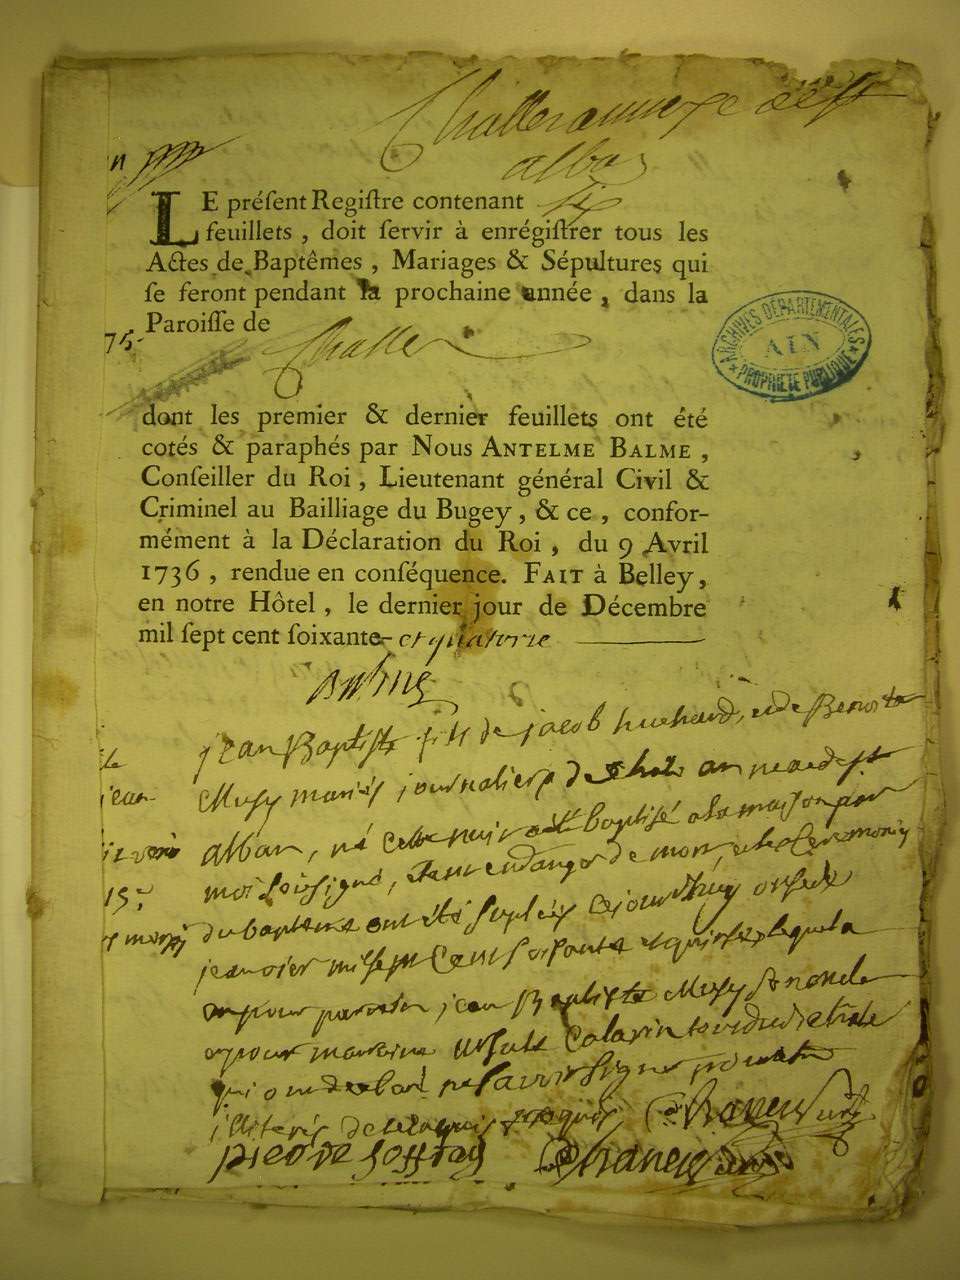 Challe annexe de St
alban
LE préſent Regiſtre contenant six
feuillets, doit ſervir à enrégiſtrer tous les
Actes de Baptêmes, Mariages & Sépultures qui
ſe feront pendant la prochaine année, dans la
Paroiſſe de
75.
Challe
ARCHIVES DÉPARTEMENTALES
AIN
PROPRIÉTÉ PUBLIQUE
dont les premier & dernier feuillets ont été
cotés & paraphés par Nous ANTELME BALME,
Conſeiller du Roi, Lieutenant général Civil &
Criminel au Bailliage du Bugey, & ce, confor-
mément à la Déclaration du Roi, du 9 Avril
1736, rendue en conſéquence. FAIT à Belley,
en notre Hôtel, le dernier jour de Décembre
mil ſept cent ſoixante-et quatorze
Balme
jean Baptiste fils de jacob huchard, et de Benoite
Musy mariés journaliers de Chale annexe de st
alban, né cette nuit baptisé a la maison par
moi soussigné, etant en danger de mort, et les Ceremonies
du bapteme ont été suplées cejourdhuy onse de
jeanvier mil sept Cent soisante et quinse
eu pour parrain jean Baptiste Musy
et pour marraine ursule Colavin
qui ont declaré ne savoir signer pour etre
illiterés de ce enquis requis
pierre joffray
jean
15.